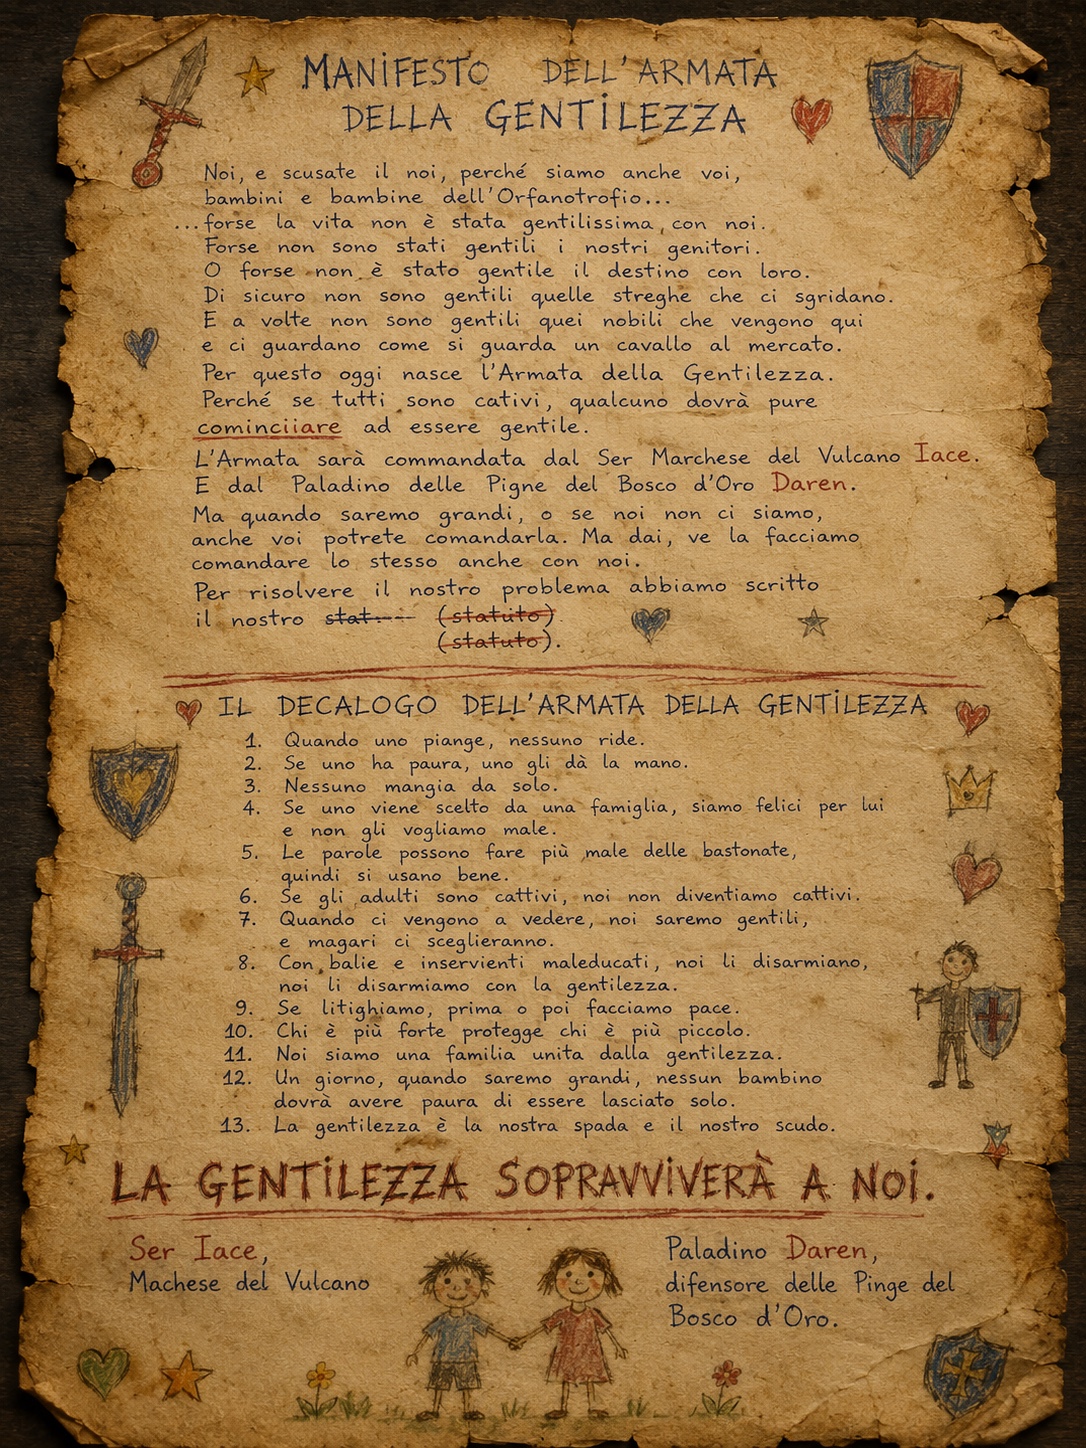 MANIFESTO DELL'ARMATA
DELLA GENTILEZZA
Noi, e scusate il noi, perché siamo anche voi,
bambini e bambine dell'Orfanotrofio...
...forse la vita non è stata gentilissima con noi.
Forse non sono stati gentili i nostri genitori.
O forse non è stato gentile il destino con loro.
Di sicuro non sono gentili quelle streghe che ci sgridano.
E a volte non sono gentili quei nobili che vengono qui
e ci guardano come si guarda un cavallo al mercato.
Per questo oggi nasce l'Armata della Gentilezza.
Perché se tutti sono cativi, qualcuno dovrà pure
cominciiare ad essere gentile.
L'Armata sarà commandata dal Ser Marchese del Vulcano Iace.
E dal Paladino delle Pigne del Bosco d'Oro Daren.
Ma quando saremo grandi, o se noi non ci siamo,
anche voi potrete comandarla. Ma dai, ve la facciamo
comandare lo stesso anche con noi.
Per risolvere il nostro problema abbiamo scritto
il nostro stat---- (statuto)
(statuto).
IL DECALOGO DELL'ARMATA DELLA GENTILEZZA
1. Quando uno piange, nessuno ride.
2. Se uno ha paura, uno gli dà la mano.
3. Nessuno mangia da solo.
4. Se uno viene scelto da una famiglia, siamo felici per lui
e non gli vogliamo male.
5. Le parole possono fare più male delle bastonate,
quindi si usano bene.
6. Se gli adulti sono cattivi, noi non diventiamo cattivi.
7. Quando ci vengono a vedere, noi saremo gentili,
e magari ci sceglieranno.
8. Con balie e inservienti maleducati, noi li disarmiano,
noi li disarmiamo con la gentilezza.
9. Se litighiamo, prima o poi facciamo pace.
10. Chi è più forte protegge chi è più piccolo.
11. Noi siamo una familia unita dalla gentilezza.
12. Un giorno, quando saremo grandi, nessun bambino
dovrà avere paura di essere lasciato solo.
13. La gentilezza è la nostra spada e il nostro scudo.
LA GENTILEZZA SOPRAVVIVERÀ A NOI.
Ser Iace,
Machese del Vulcano
Paladino Daren,
difensore delle Pinge del
Bosco d'Oro.